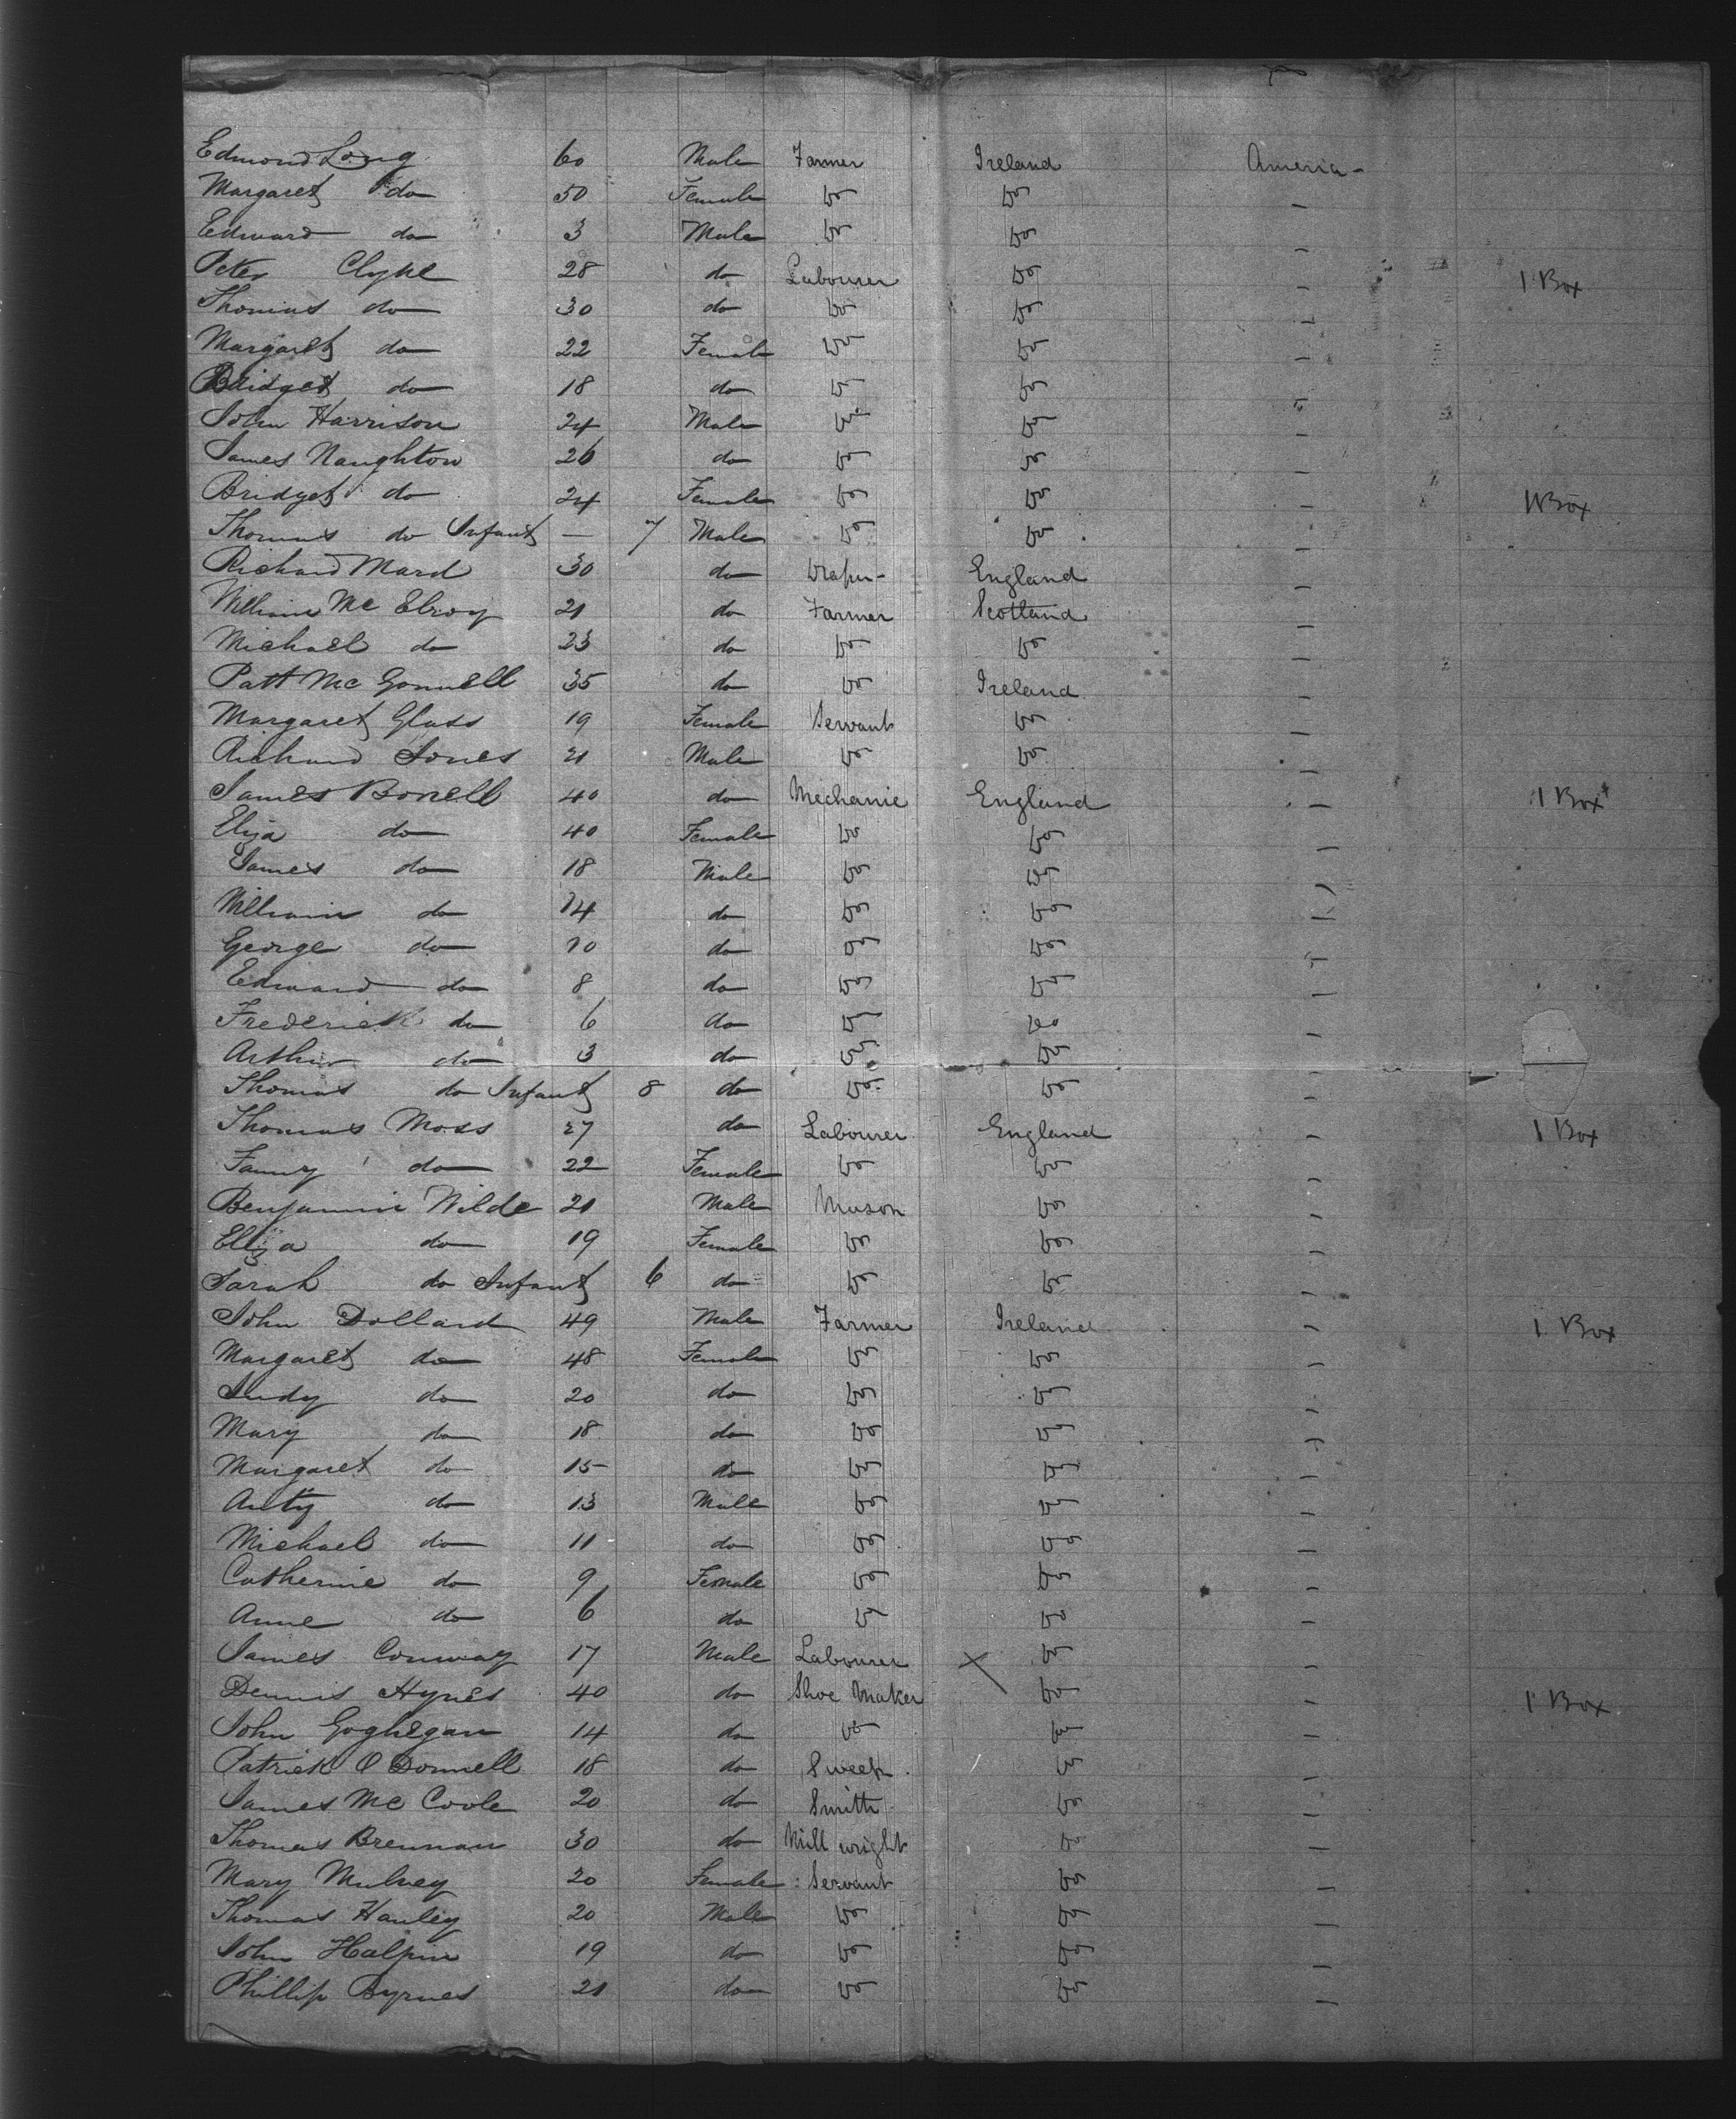 Edmond Long 60 Male Farmer Ireland America -
Margaret do 50 Female Do Do -
Edward do 3 Male Do Do -
Peter Clyne 28 do Labourer Do - 1 Box
Thomas do 30 do Do Do -
Margaret do 22 Female Do Do -
Bridget do 18 do Do Do -
John Harrison 24 Male Do Do -
James Naughton 26 do Do Do -
Bridget do 24 Female Do Do - 1 Box
Thomas do Infant — 7 Male Do Do -
Richard Ward 30 do Draper England -
William Mc Elroy 21 do Farmer Scotland -
Michael do 23 do Do Do -
Patt Mc Gonnell 35 do Do Ireland -
Margaret Glass 19 Female Servant Do -
Richard Jones 21 Male Do Do -
James Bonell 40 do Mechanic England - 1 Box
Eliza do 40 Female Do Do -
James do 18 Male Do Do -
William do 14 do Do Do -
George do 10 do Do Do -
Edward do 8 do Do Do -
Frederick do 6 do Do Do -
Arthur do 3 do Do Do -
Thomas do Infant 8 do Do Do -
Thomas Moss 27 do Labourer England - 1 Box
Fanny do 22 Female Do Do -
Benjamin Wilde 21 Male Mason Do -
Eliza do 19 Female Do Do -
Sarah do Infant 6 do Do Do -
John Dollard 49 Male Farmer Ireland - 1 Box
Margaret do 48 Female Do Do -
Judy do 20 do Do Do -
Mary do 18 do Do Do -
Margaret do 15 do Do Do -
Anty do 13 Male Do Do -
Michael do 11 do Do Do -
Catherine do 9 Female Do Do -
Anne do 6 do Do Do -
James Conway 17 Male Labourer X Do -
Dennis Hynes 40 do Shoe Maker Do - 1 Box
John Goghegan 14 do Do Do -
Patrick O Donnell 18 do Sweep Do -
James Mc Coole 20 do Smith Do -
Thomas Brennan 30 do Mill wright Do -
Mary Mulvey 20 Female Servant Do -
Thomas Hanley 20 Male Do Do -
John Halpin 19 do Do Do -
Phillip Byrnes 21 do Do Do -